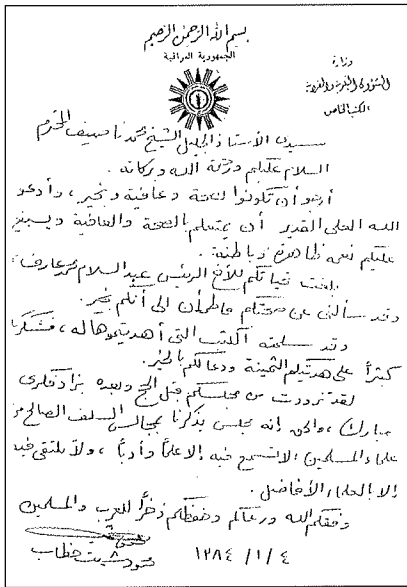 بسم الله الرحمن الرحيم
الجمهورية العراقية
وزارة
الشؤون البلدية والقروية
المكتب الخاص
سيدي الأستاذ الجليل الشيخ محمد نصيف المحترم
السلام عليكم ورحمة الله وبركاته .
أرجو أن تكونوا بصحة وعافية وبخير ، وأدعو
الله العلي القدير أن يمتعكم بالصحة والعافية ويسبغ
عليكم نعمه ظاهرة وباطنة .
بلغت تحياتكم للأخ الرئيس عبد السلام محمد عارف ،
وقد سألني عن صحتكم فاطمأن الى أنكم بخير .
وقد سلمته الكتب التي أهديتموها له ، فشكركم
كثيراً على هديتكم الثمينة ودعا لكم بالخير .
لقد تزودت من مجلسكم قبل الحج وبعده بزاد فكري
مبارك ، والحق إنه مجلس يذكرنا بمجالس السلف الصالح من
علماء المسلمين ، لا تسمع فيه إلا علماً وأدباً ، ولا يلتقي فيه
إلا العلماء الأفاضل .
وفقكم الله ورعاكم وحفظكم ذخراً للعرب والمسلمين
محمود شيت خطاب
١٣٨٤ / ١ / ٤